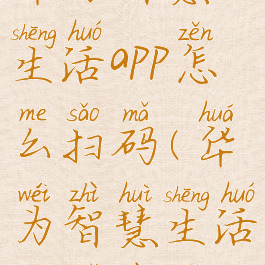 shēng huó zěn
生活app怎
me sǎo mǎ huá
么扫码(华
wéi zhì huì shēng huó
为智慧生活